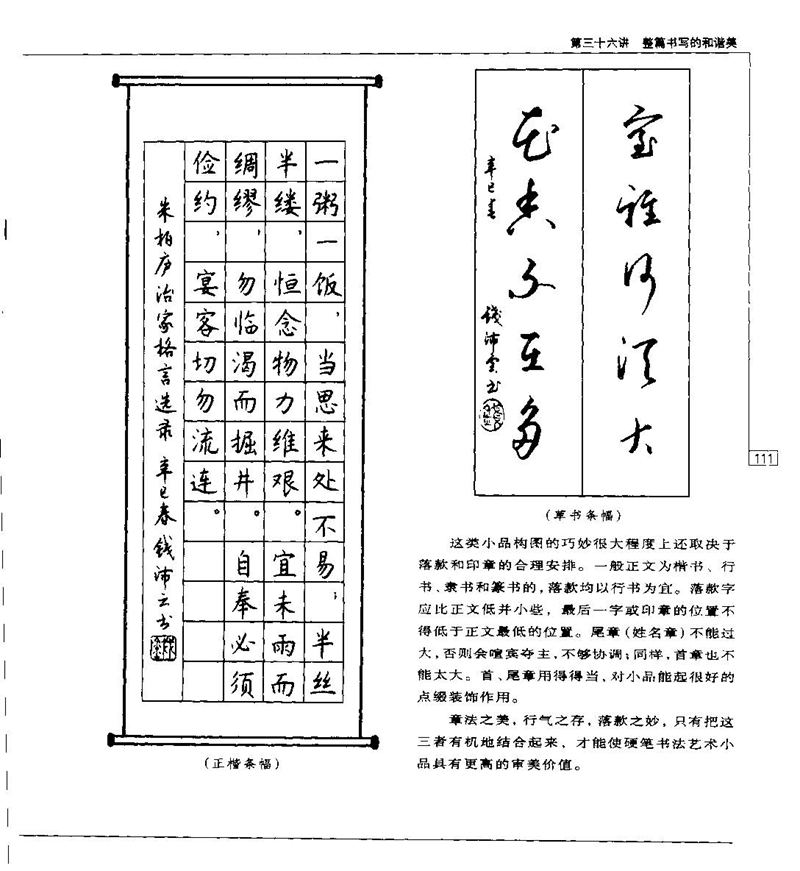 第三十六讲 整篇书写的和谐美
一粥一饭，当思来处不易；半丝
半缕，恒念物力维艰。宜未雨而
绸缪，勿临渴而掘井。自奉必须
俭约，宴客切勿流连。
朱柏庐治家格言选录 辛巳春 钱沛云书
（正楷条幅）
室雅何须大
花香不在多
辛巳春
錢沛雲书
（草书条幅）
这类小品构图的巧妙很大程度上还取决于
落款和印章的合理安排。一般正文为楷书、行
书、隶书和篆书的，落款均以行书为宜。落款字
应比正文低并小些，最后一字或印章的位置不
得低于正文最低的位置。尾章（姓名章）不能过
大，否则会喧宾夺主，不够协调；同样，首章也不
能太大。首、尾章用得得当，对小品能起很好的
点缀装饰作用。
章法之美，行气之存，落款之妙，只有把这
三者有机地结合起来，才能使硬笔书法艺术小
品具有更高的审美价值。
111